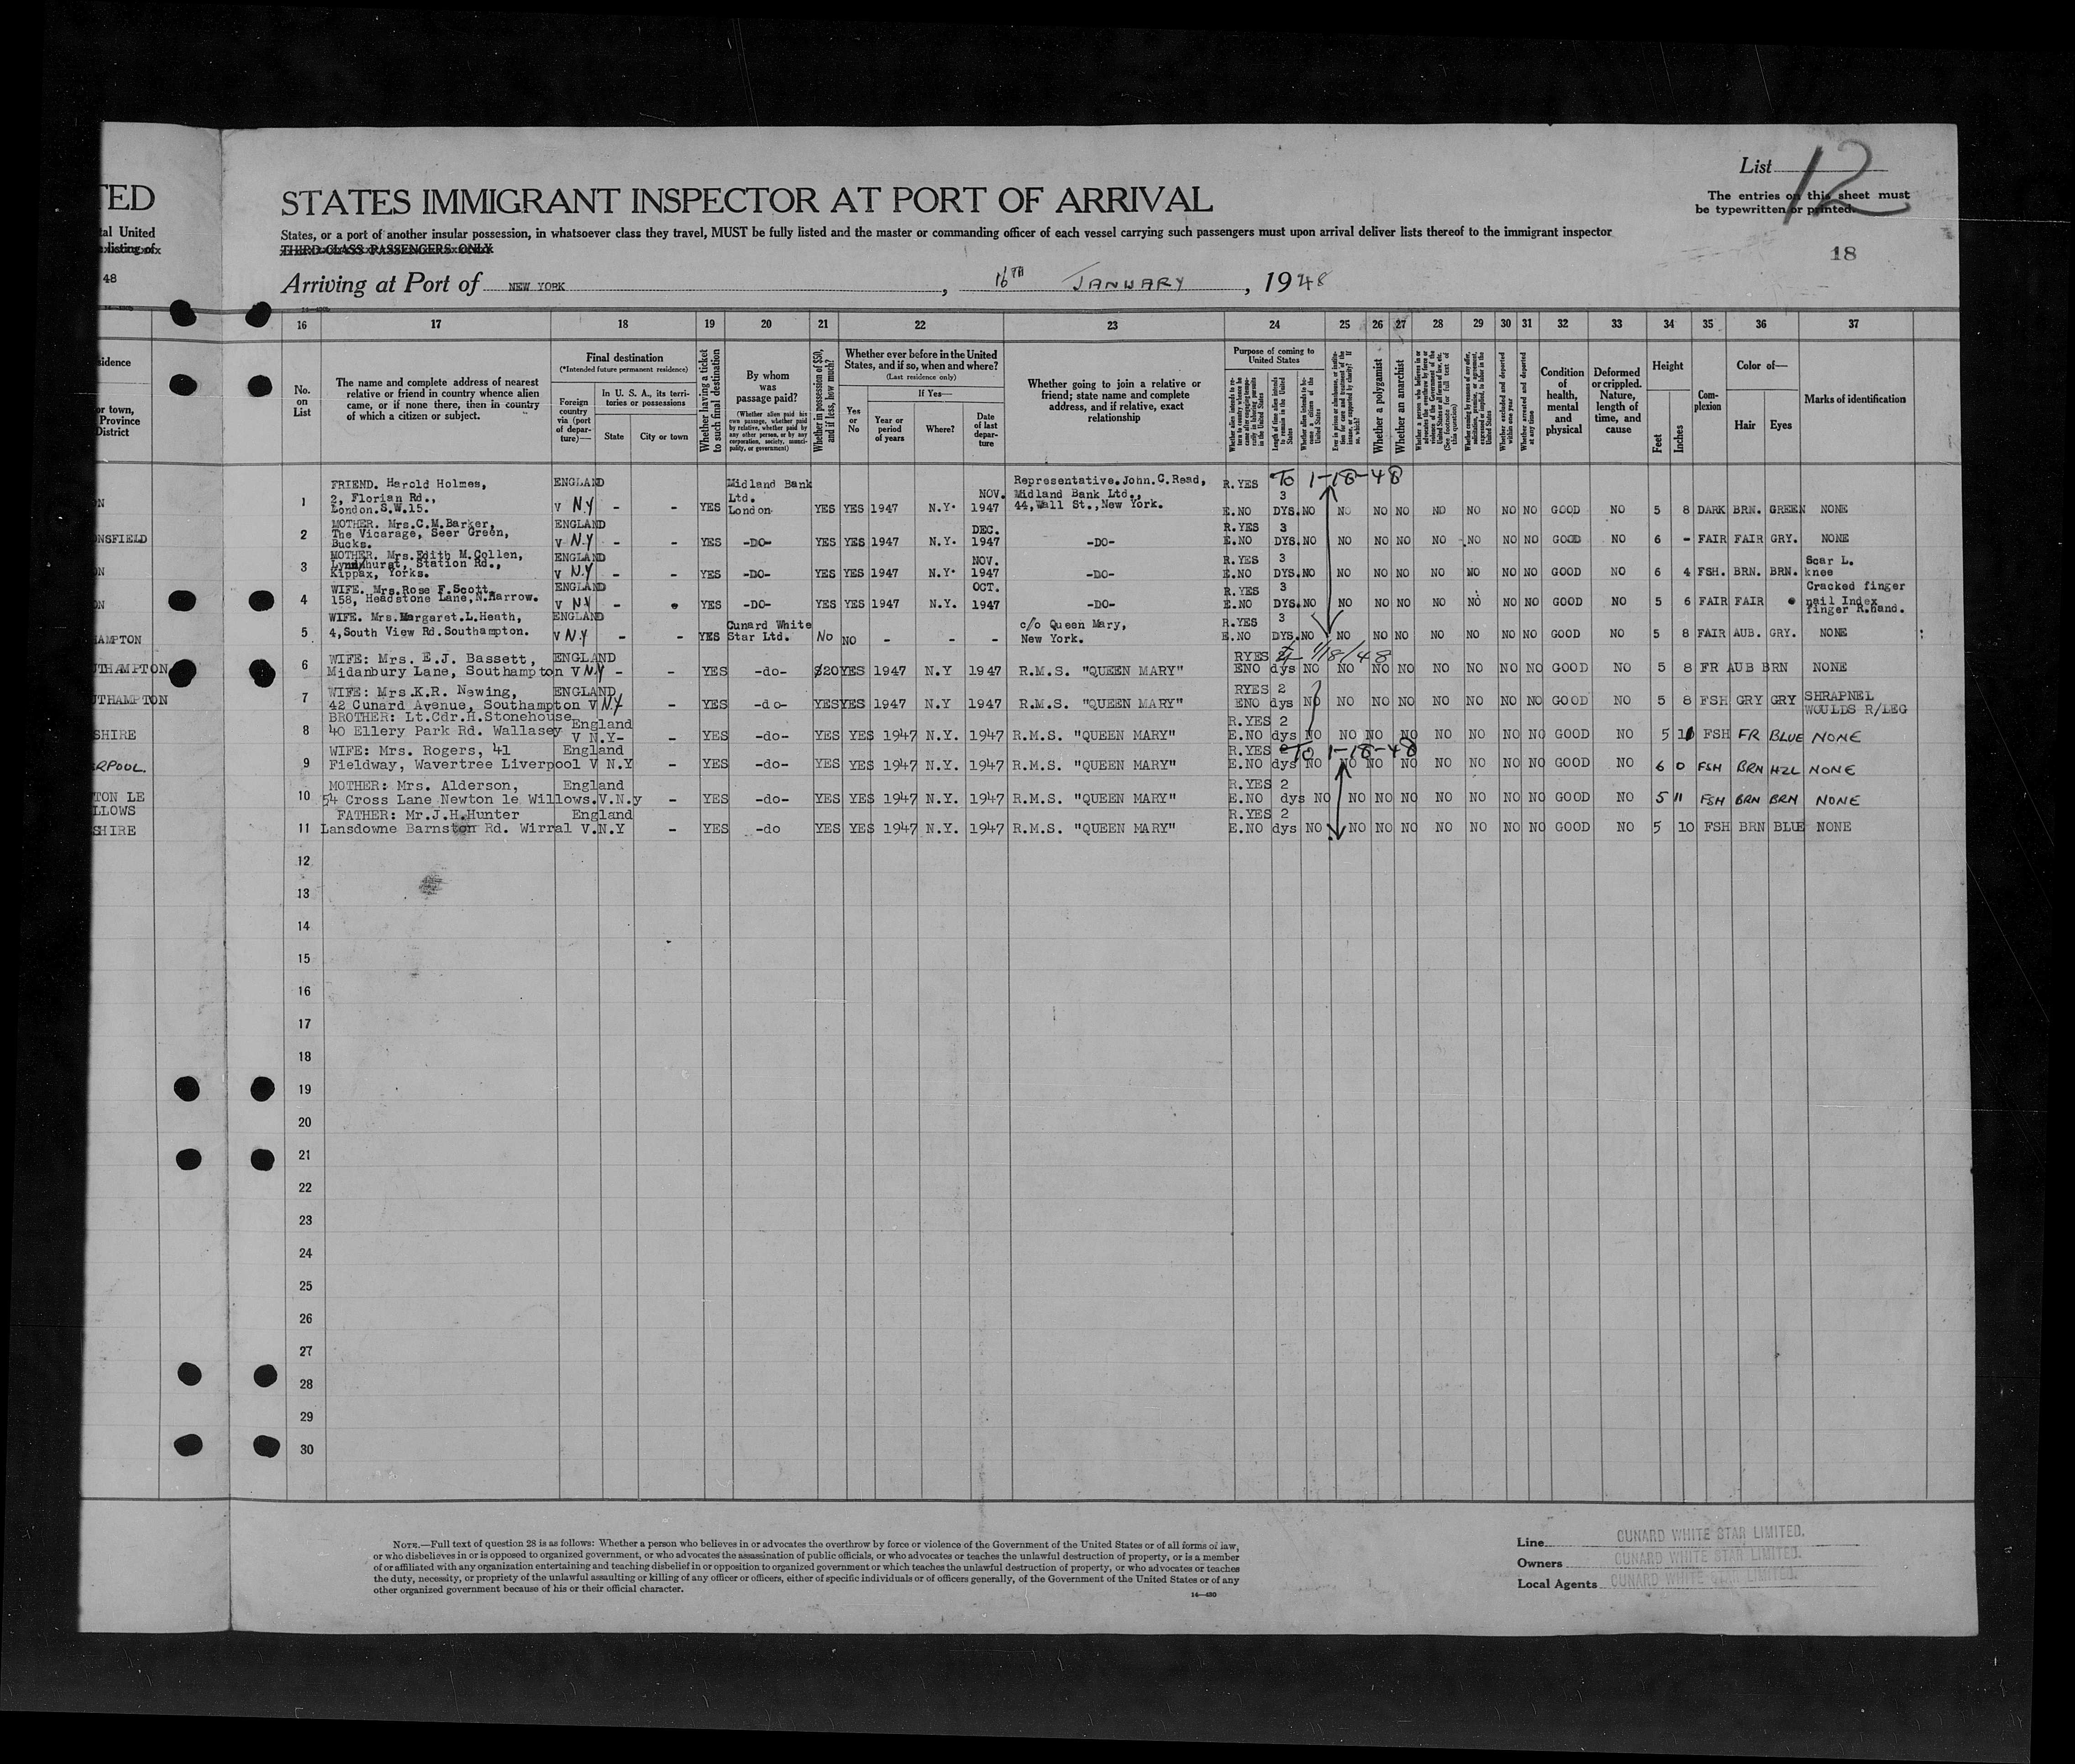 TED
tal United
listing of
48
sidence
or town,
Province
District
ON
ONSFIELD
ON
ON
HAMPTON
UTHAMPTON
UTHAMPTON
SHIRE
ERPOOL.
TON LE
LLOWS
SHIRE
List 12
The entries on this sheet must
be typewritten or printed.
18
STATES IMMIGRANT INSPECTOR AT PORT OF ARRIVAL
States, or a port of another insular possession, in whatsoever class they travel, MUST be fully listed and the master or commanding officer of each vessel carrying such passengers must upon arrival deliver lists thereof to the immigrant inspector
THIRD-CLASS PASSENGERS ONLY
Arriving at Port of NEW YORK, 16TH JANUARY, 1948
16 17 18 19 20 21 22 23 24 25 26 27 28 29 30 31 32 33 34 35 36 37
No. on List
The name and complete address of nearest relative or friend in country whence alien came, or if none there, then in country of which a citizen or subject.
Final destination
(*Intended future permanent residence)
Foreign country via (port of departure)—
In U. S. A., its territories or possessions
State
City or town
Whether having a ticket to such final destination
By whom was passage paid?
(Whether alien paid his own passage, whether paid by relative, whether paid by any other person, or by any corporation, society, municipality, or government)
Whether in possession of $50, and if less, how much?
Whether ever before in the United States, and if so, when and where?
(Last residence only)
Yes or No
If Yes—
Year or period of years
Where?
Date of last departure
Whether going to join a relative or friend; state name and complete address, and if relative, exact relationship
Purpose of coming to United States
Length of time alien intends to remain in the United States
Whether alien intends to become a citizen of the United States
Whether a polygamist
Whether an anarchist
Whether excluded and deported within one year
Whether arrested and deported at any time
Condition of health, mental and physical
Deformed or crippled. Nature, length of time, and cause
Height
Feet
Inches
Complexion
Color of—
Hair
Eyes
Marks of identification
To 1-18-48
1 FRIEND. Harold Holmes, 2, Florian Rd., London.S.W.15. ENGLAND V N.Y - - YES Midland Bank Ltd. London. YES YES 1947 N.Y. NOV. 1947 Representative.John.C.Read, Midland Bank Ltd., 44,Wall St.,New York. R.YES E.NO 3 DYS. NO NO NO NO NO NO NO NO GOOD NO 5 8 DARK BRN. GREEN NONE
2 MOTHER. Mrs.C.M.Barker, The Vicarage, Seer Green, Bucks. ENGLAND V N.Y - - YES -DO- YES YES 1947 N.Y. DEC. 1947 -DO- R.YES E.NO 3 DYS. NO NO NO NO NO NO NO NO GOOD NO 6 - FAIR FAIR GRY. NONE
3 MOTHER. Mrs.Edith M.Collen, Lynnhurst, Station Rd., Kippax, Yorks. ENGLAND V N.Y - - YES -DO- YES YES 1947 N.Y. NOV. 1947 -DO- R.YES E.NO 3 DYS. NO NO NO NO NO NO NO NO GOOD NO 6 4 FSH. BRN. BRN. Scar L. knee
4 WIFE. Mrs.Rose F.Scott, 158, Headstone Lane,N.Harrow. ENGLAND V N.Y - - YES -DO- YES YES 1947 N.Y. OCT. 1947 -DO- R.YES E.NO 3 DYS. NO NO NO NO NO NO NO NO GOOD NO 5 6 FAIR FAIR Cracked finger nail Index finger R.hand.
5 WIFE. Mrs.Margaret.L.Heath, 4,South View Rd.Southampton. ENGLAND V N.Y - - YES Cunard White Star Ltd. No NO - - - c/o Queen Mary, New York. R.YES E.NO 3 DYS. NO NO NO NO NO NO NO NO GOOD NO 5 8 FAIR AUB. GRY. NONE
1/18/48
6 WIFE: Mrs. E.J. Bassett, Midanbury Lane, Southampton ENGLAND V N.Y - - YES -do- $20 YES 1947 N.Y 1947 R.M.S. "QUEEN MARY" RYES ENO dys NO NO NO NO NO NO NO NO GOOD NO 5 8 FR AUB BRN NONE
7 WIFE: Mrs.K.R. Newing, 42 Cunard Avenue, Southampton ENGLAND V N.Y - YES -do- YES YES 1947 N.Y 1947 R.M.S. "QUEEN MARY" RYES ENO 2 dys NO NO NO NO NO NO NO NO GOOD NO 5 8 FSH GRY GRY SHRAPNEL WOULDS R/LEG
8 BROTHER: Lt.Cdr.H.Stonehouse 40 Ellery Park Rd. Wallasey England V N.Y- - YES -do- YES YES 1947 N.Y. 1947 R.M.S. "QUEEN MARY" R.YES E.NO 2 dys NO NO NO NO NO NO NO NO GOOD NO 5 10 FSH FR BLUE NONE
To 1-18-48
9 WIFE: Mrs. Rogers, 41 Fieldway, Wavertree Liverpool England V N.Y - YES -do- YES YES 1947 N.Y. 1947 R.M.S. "QUEEN MARY" R.YES E.NO dys NO NO NO NO NO NO NO NO GOOD NO 6 0 FSH BRN HZL NONE
10 MOTHER: Mrs. Alderson, 54 Cross Lane Newton le Willows. England V.N.y - YES -do- YES YES 1947 N.Y. 1947 R.M.S. "QUEEN MARY" R.YES E.NO 2 dys NO NO NO NO NO NO NO NO GOOD NO 5 11 FSH BRN BRN NONE
11 FATHER: Mr.J.H.Hunter Lansdowne Barnston Rd. Wirral England V.N.Y - YES -do YES YES 1947 N.Y. 1947 R.M.S. "QUEEN MARY" R.YES E.NO 2 dys NO NO NO NO NO NO NO NO GOOD NO 5 10 FSH BRN BLUE NONE
12
13
14
15
16
17
18
19
20
21
22
23
24
25
26
27
28
29
30
NOTE.—Full text of question 28 is as follows: Whether a person who believes in or advocates the overthrow by force or violence of the Government of the United States or of all forms of law,
or who disbelieves in or is opposed to organized government, or who advocates the assassination of public officials, or who advocates or teaches the unlawful destruction of property, or is a member
of or affiliated with any organization entertaining and teaching disbelief in or opposition to organized government or which teaches the unlawful destruction of property, or who advocates or teaches
the duty, necessity, or propriety of the unlawful assaulting or killing of any officer or officers, either of specific individuals or of officers generally, of the Government of the United States or of any
other organized government because of his or their official character.
14—430
Line CUNARD WHITE STAR LIMITED.
Owners CUNARD WHITE STAR LIMITED.
Local Agents CUNARD WHITE STAR LIMITED.